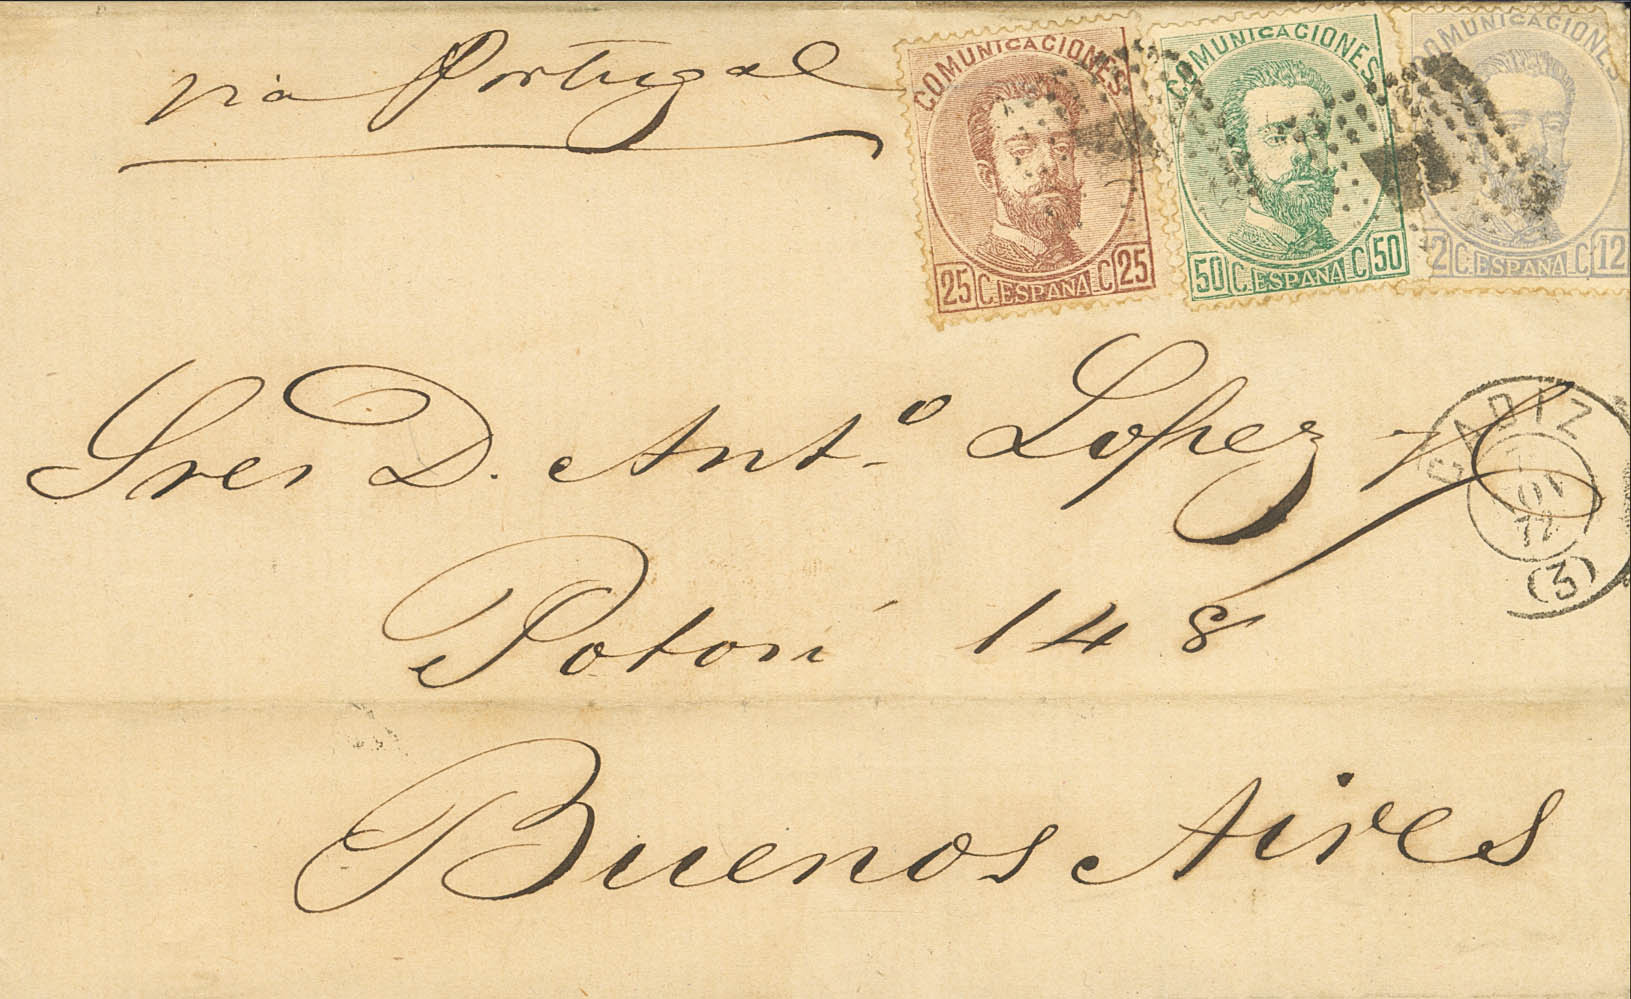 via Portugal
COMUNICACIONES
25 C. ESPAÑA C 25
COMUNICACIONES
50 C. ESPAÑA C 50
COMUNICACIONES
12 C. ESPAÑA C 12
Sres D. Antº Lopez y
CADIZ
NOV
72
(3)
Potosí 148
Buenos Aires